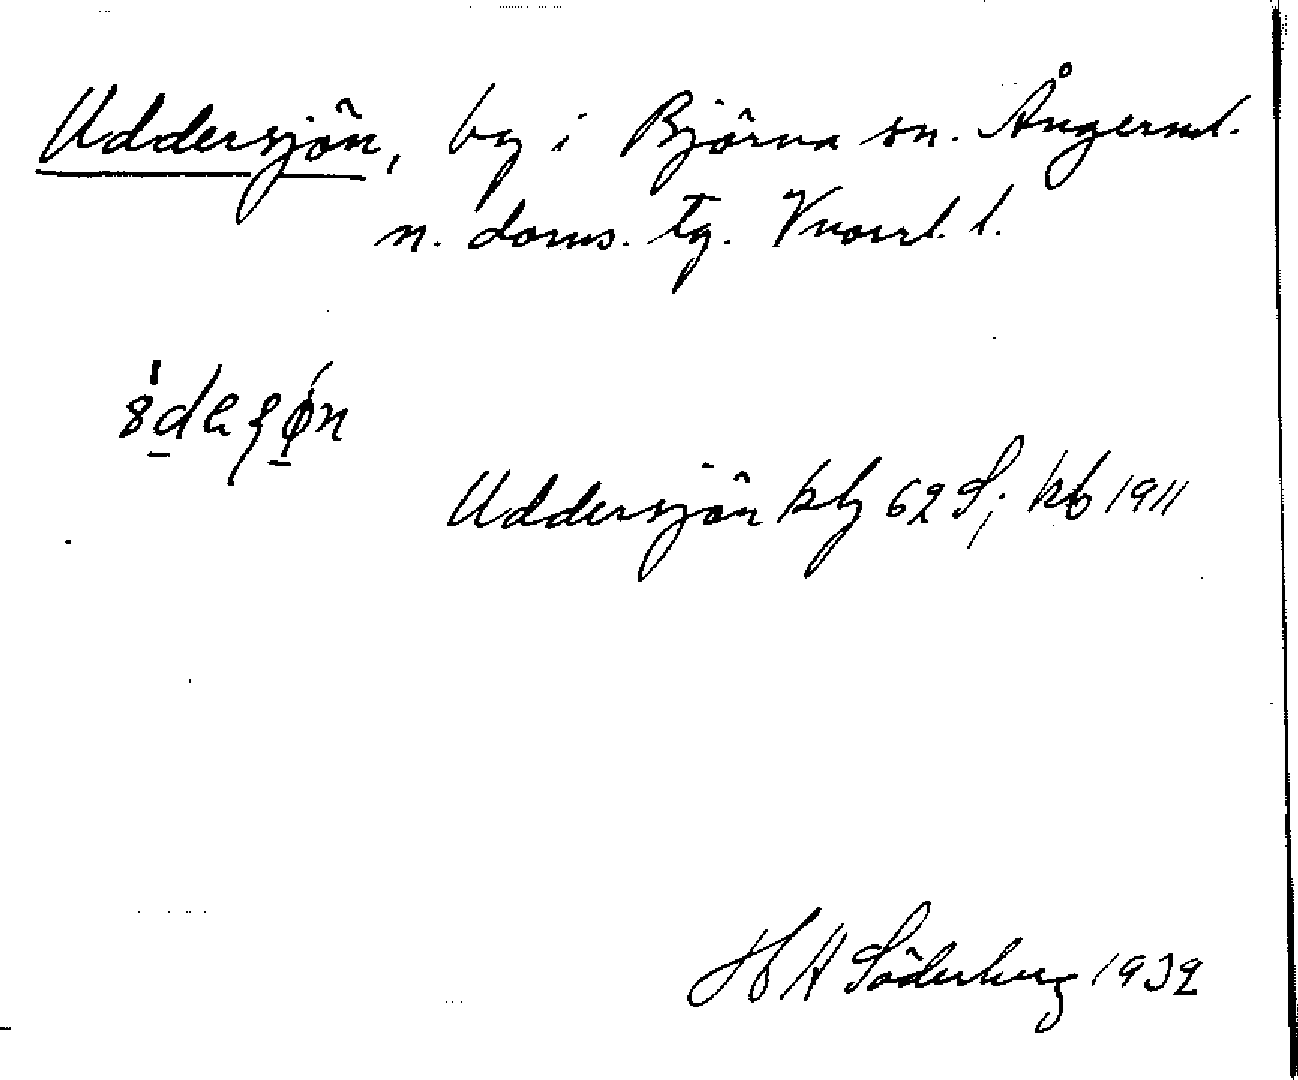 Uddersjön, by i Björna sn. Ångerml.
n. doms. tg. Vnorrl. l.
Uddersjön kbg 62 S; kb 1911
H A Söderberg 1932